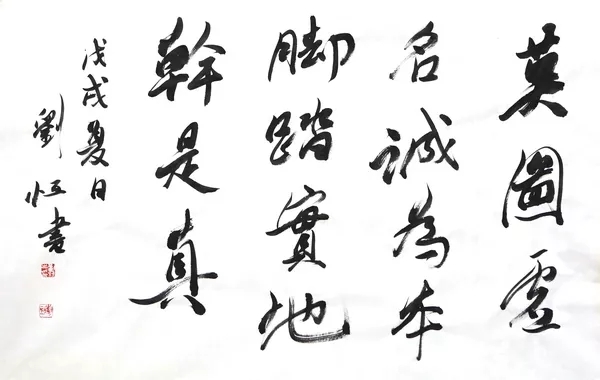 莫圖虛
名誠為本
脚踏實地
幹是真
戊戌夏日
劉恒書